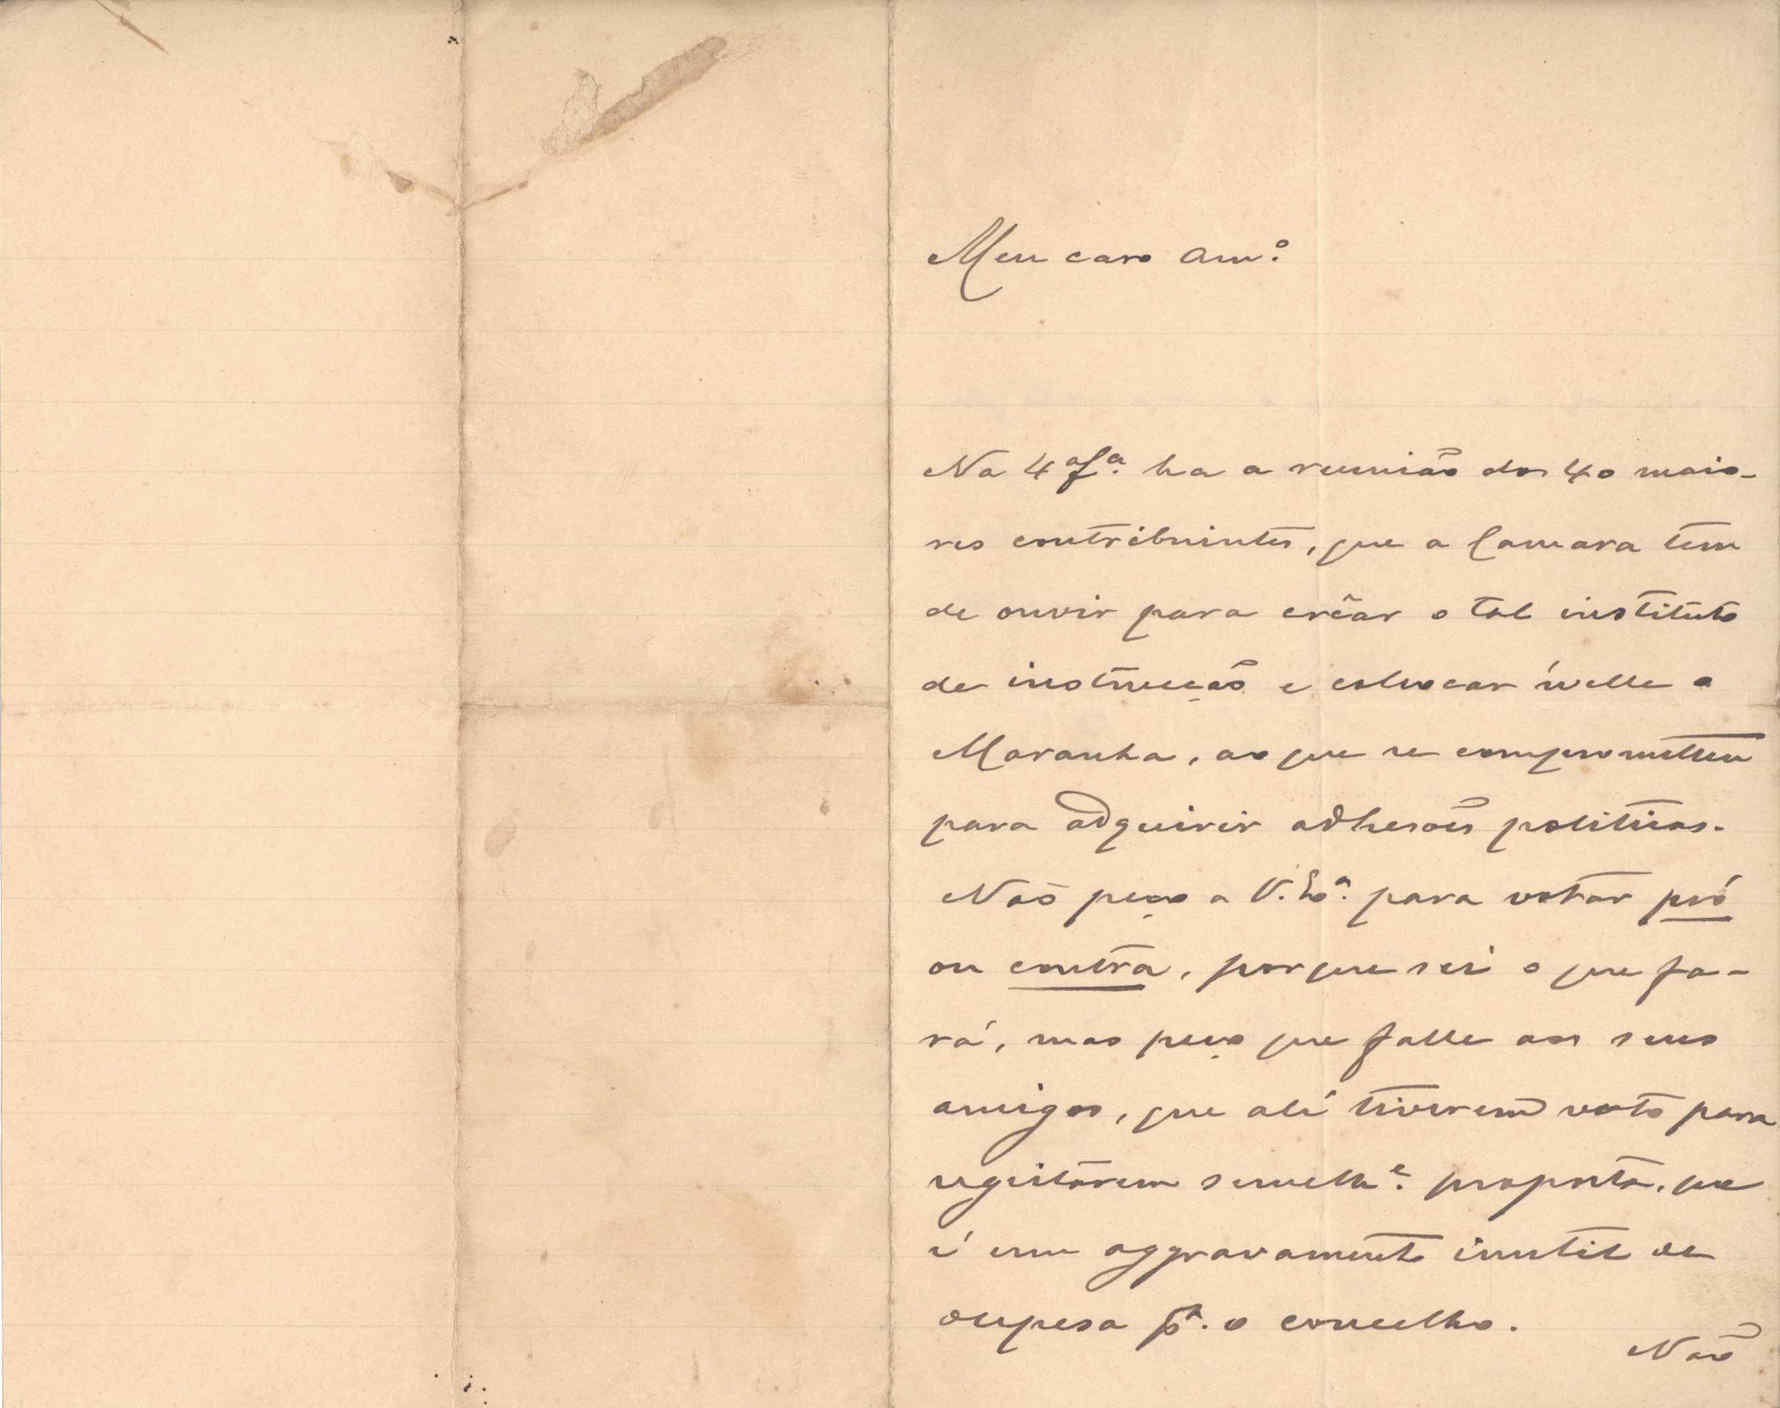 Meu caro Am.º
Na 4ª fª. ha a reunião dos 40 maio-
res contribuintes, que a Camara tem
de ouvir para crêar o tal instituto
de instrucção e collocar n'elle o
Maranha, ao que se comprometteu
para adquirir adhesões politicas.
Não peço a V. Exª. para votar pró
ou contra, porque sei o que fa-
rá, mas peço que falle aos seus
amigos, que alí tiverem voto para
regeitarem semelhe. proposta, que
é um aggravamento inutil de
despesa pª. o concelho.
Não